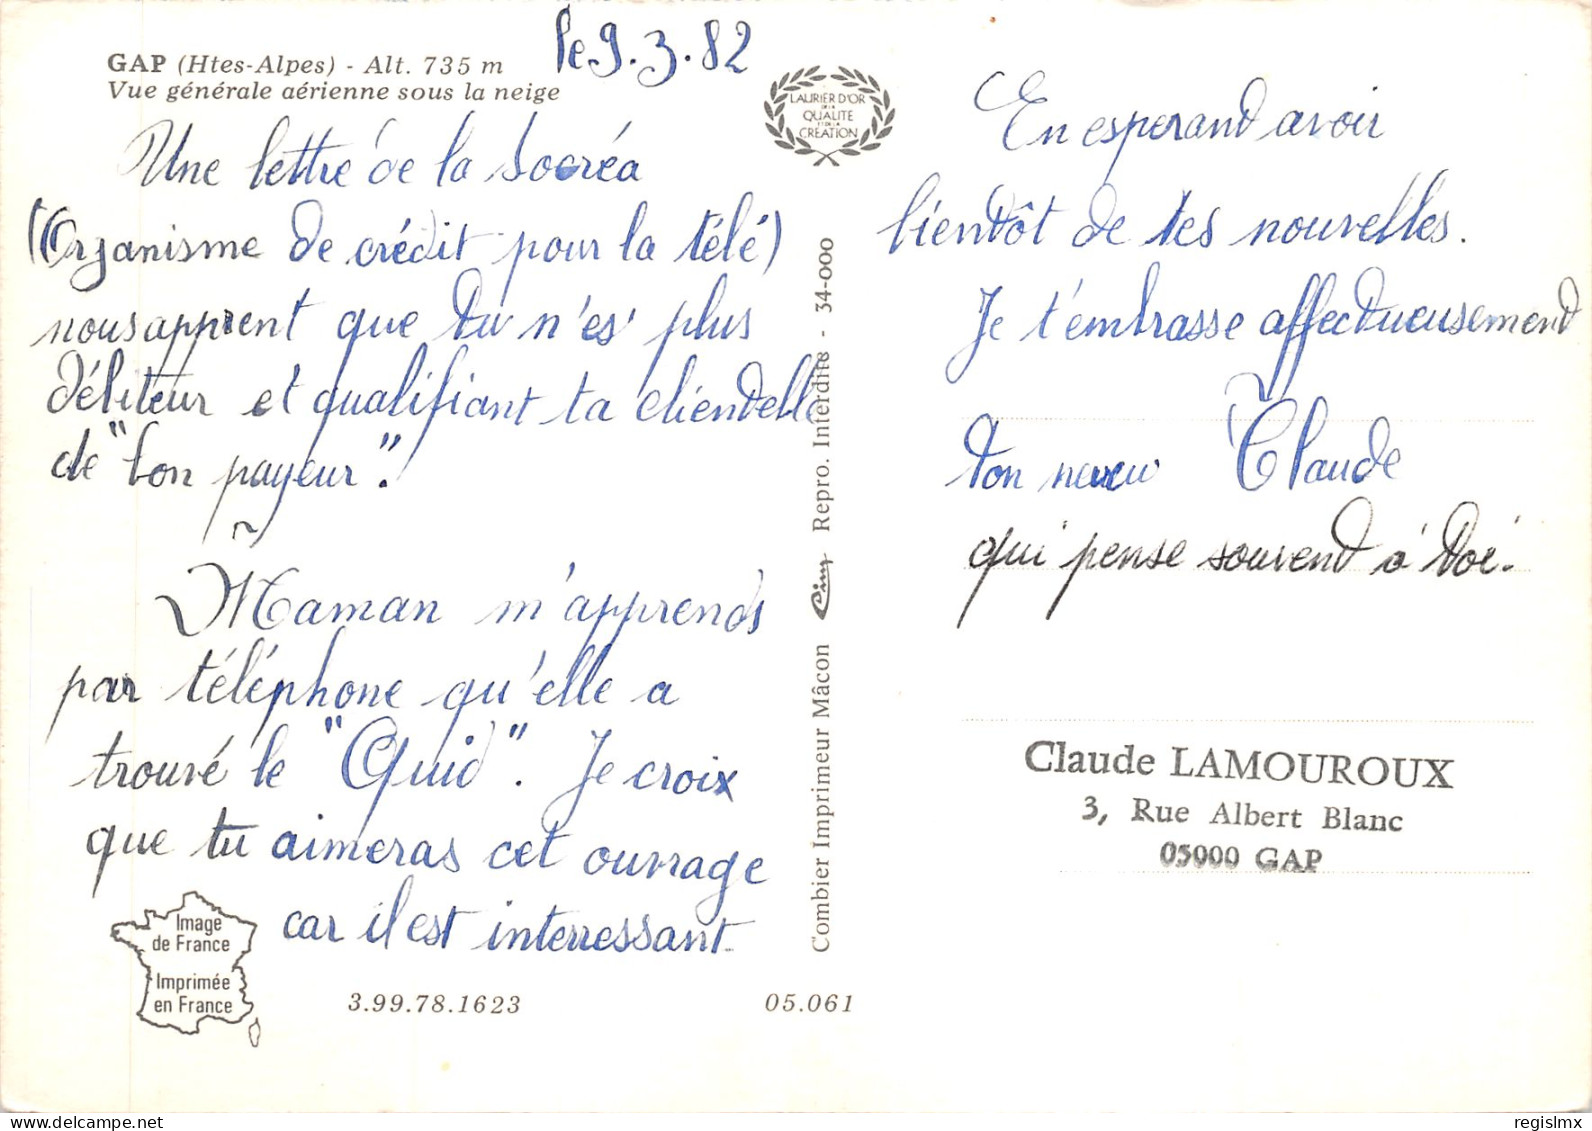 GAP (Htes-Alpes) - Alt. 735 m
Vue générale aérienne sous la neige
le 9.3.82
Une lettre de la Socréa
(Organisme de crédit pour la télé)
nous apprent que tu n'es plus
débiteur et qualifiant ta cliendelle
de "bon payeur".
Maman m'apprends
par téléphone qu'elle a
trouvé le "Quid". Je croix
que tu aimeras cet ouvrage
car il est interressant.
Image
de France
Imprimée
en France
3.99.78.1623
05.061
LAURIER D'OR
DE LA
QUALITE
ET DE LA
CREATION
Combier Imprimeur Mâcon Cim Repro. Interdite - 34-000
En esperand avoir
bientôt de tes nouvelles.
Je t'embrasse affectueusemend
Ton neveu Claude
qui pense souvend à toi.
Claude LAMOUROUX
3, Rue Albert Blanc
05000 GAP
regislmx